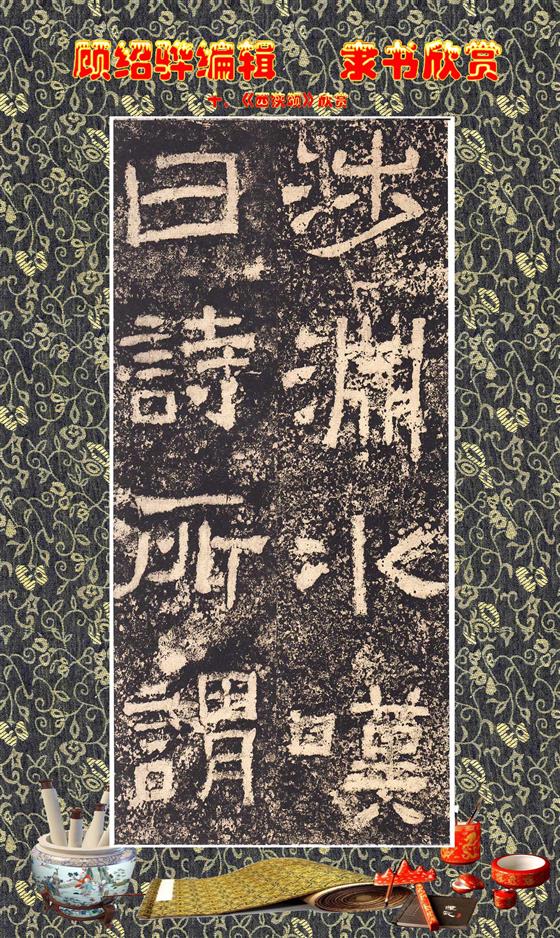 顾绍骅编辑 隶书欣赏
十、《西狭颂》欣赏
涉淵冰嘆
曰詩所謂